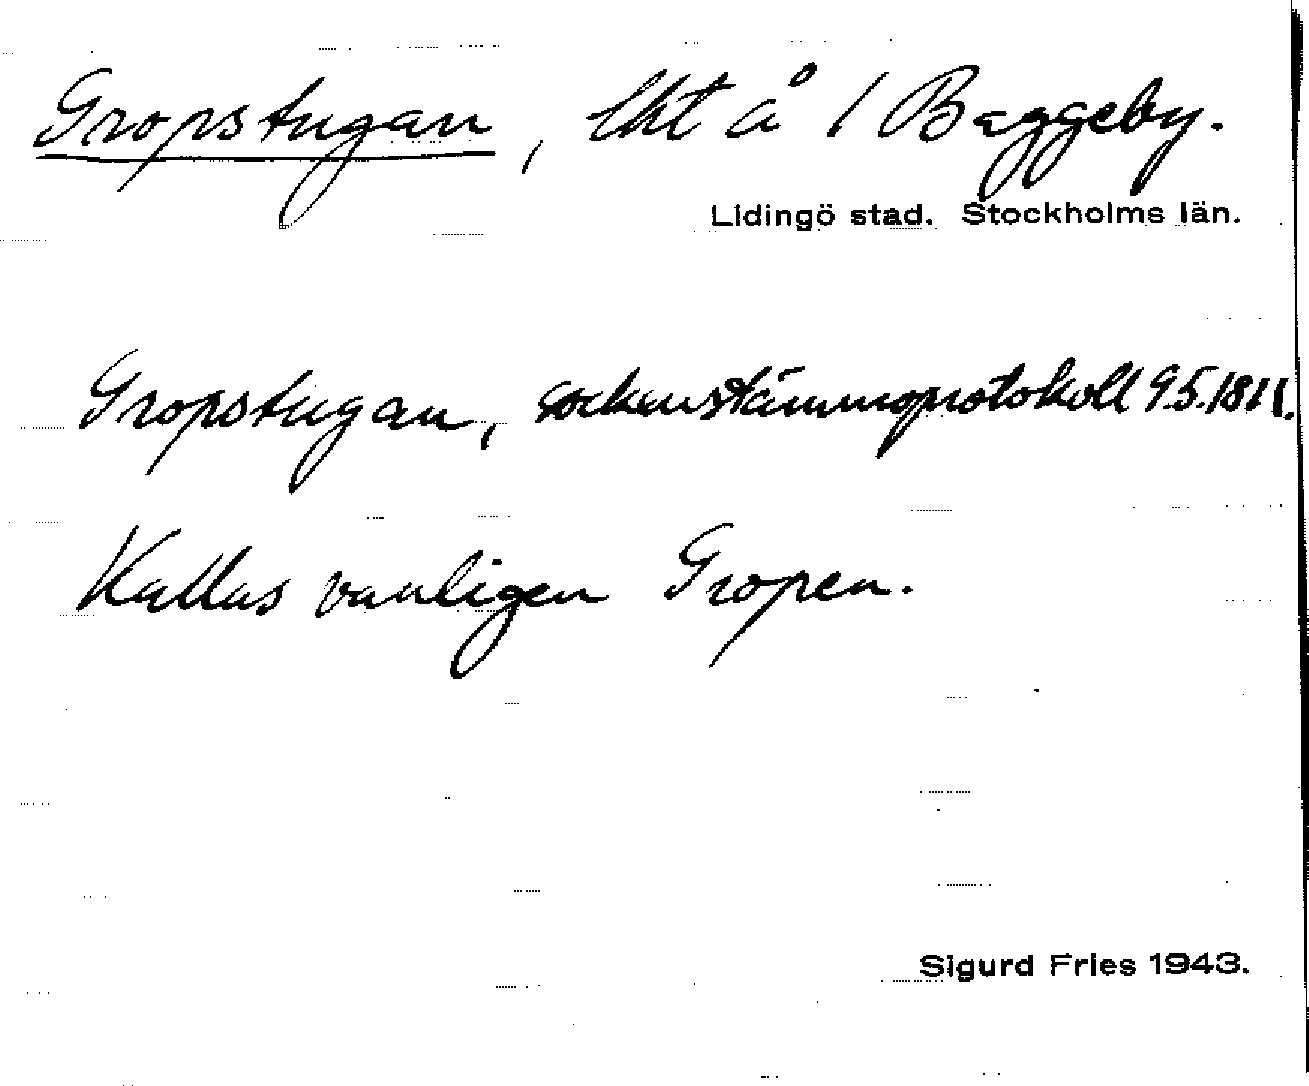 Gropstugan, lht å 1 Baggeby.
Lidingö stad. Stockholms län.
Gropstugan, sockenstämmoprotokoll 9.5.1811.
Kallas vanligen Gropen.
Sigurd Fries 1943.